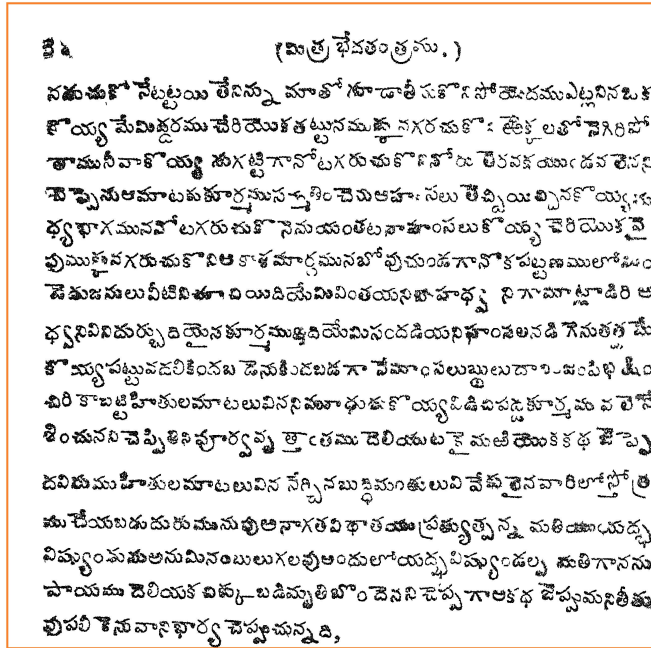 (మిత్ర భేదతంత్రము.)
నడుచుకో నేటట్టయి తేనిన్ను మాతో గూడాతీసుకొనిపోయెదముఎట్లనినఒక
కొయ్య మేమిద్దరము చేరియొకతట్టునముక్కునగరచుకొని ఱెక్కలతో నెగిరిపో
తామునీవాకొయ్యను గట్టిగానోటగరుచుకొని నోరు తెరవకయుండవలెనని
చెప్పెనుఆమాటకుకూర్మముసమ్మతించెనుఆహంసలు తెచ్చియిచ్చినకొయ్య
ధ్యభాగముననోటగరుచుకొనెనుయంతటనాహంసలుకొయ్య చేరియొకవై
పుముక్కునగరుచుకొనిఆకాశమార్గమునబోవుచుండగానొకపట్టణములో
డెడుజనులువీటినిజూచియిదియేమివింతయనిమహధ్వనిగామాట్లాడిరి ఆ
ధ్వనివినిదుర్బుద్దియైనకూర్మముఇదియేమిసందడియనిహంసలనడిగెను
కొయ్యపట్టువడలికిందబడెనుకిందబడగానేహంసలుబ్ధులుదాని
చిరి కాబట్టిహితులమాటలువిననిమూఢుడుకొయ్యఓడిచిపడ్డకూర్మమువలెనే
శించుననిచెప్పితినిపూర్వవృత్తాంతము దెలియుటకైమఱియొకకథజెప్పె
దవినుముహితులమాటలువిననేర్చినబుద్ధిమంతులువివేకులైనవారిలోస్తోత్ర
ముచేయబడుదురుమునుపుఅనాగతవిధాతయుప్రత్యుత్పన్నమతియుయద్భ
విష్యుండునుఅనుమీనంబులుగలవుఅందులోయద్భవిష్యుండల్పమతిగానను
పాయము దెలియకచిక్కుబడిమృతిబొందెననిచెప్పగాఆకథజెప్పుమనితీతు
వుపలికెనువానిభార్య చెప్పుచున్నది,